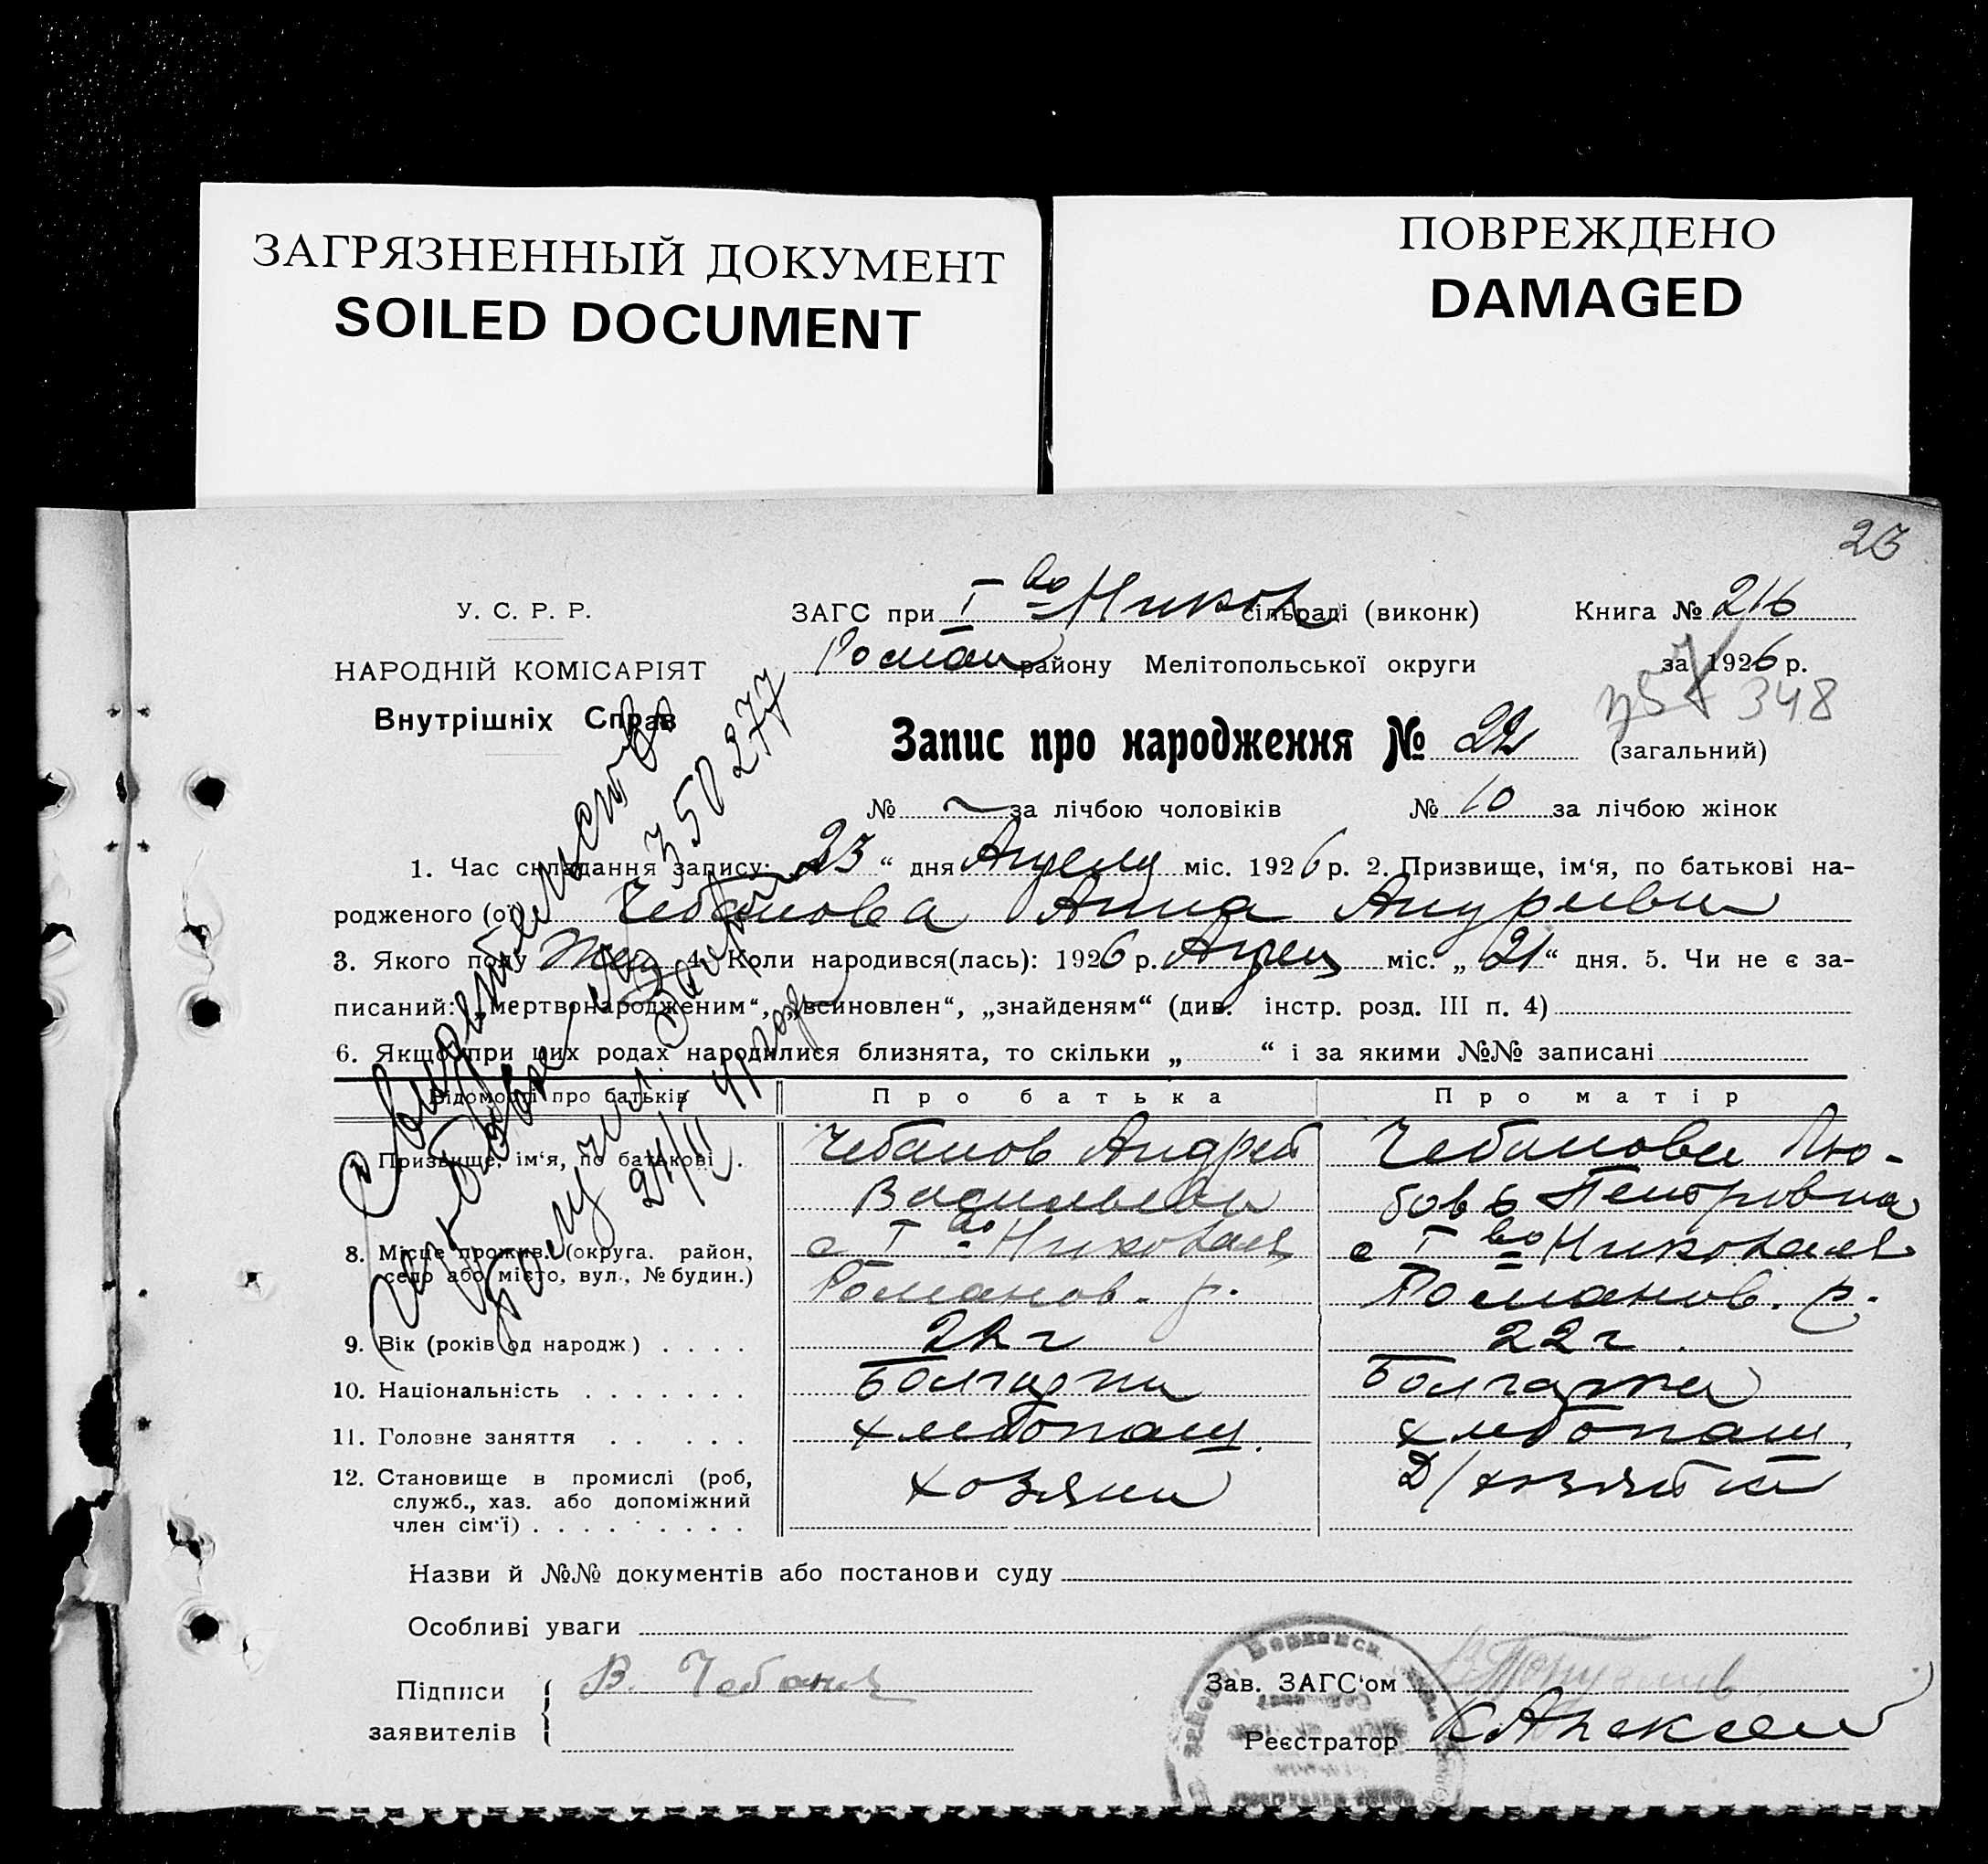 ЗАГРЯЗНЕННЫЙ ДОКУМЕНТ
SOILED DOCUMENT
ПОВРЕЖДЕНО
DAMAGED
23
У. С. Р. Р.
НАРОДНІЙ КОМІСАРІЯТ
Внутрішніх Справ
ЗАГС при I во Никол сільраді (виконк) Книга № 216
Роман району Мелітопольської округи за 1926 р.
348
Запис про народження № 22 (загальний)
№ за лічбою чоловіків № 10 за лічбою жінок
1. Час складання запису: 23 “ дня Апреля міс. 1926 р. 2. Призвище, ім‘я, по батькові на-
родженого (ої) Чебанова Анна Андреевна
3. Якого полу Жен 4. Коли народився(лась): 1926 р. Апрель міс. „ 21 “ дня. 5. Чи не є за-
писаний: „мертвонародженим“, „всиновлен“, „знайденям“ (див. інстр. розд. III п. 4)
6. Якщо при цих родах народилися близнята, то скільки „ “ і за якими №№ записані
Свидетельство
350277
Відомості про батьків Про батька Про матір
Призвище, ім‘я, по батькові Чебанов Андрей Чебанова Лю-
Васильевич бовь Петровна
8. Місце прожив. (округа. район, с I во Николаев с I во Николаев
село або місто, вул., № будин.) Романов. р. Романов. р.
9. Вік (років од народж) 22 г 22 г
10. Національність Болгарин Болгарка
11. Головне заняття хлебопаш. хлебопаш.
12. Становище в промислі (роб, хозяин Д/хозяйка
служб., хаз. або допоміжний
член сім‘ї)
Назви й №№ документів або постанови суду
Особливі уваги
Підписи В. Чебанов Зав. ЗАГС‘ом
заявителів Реєстратор